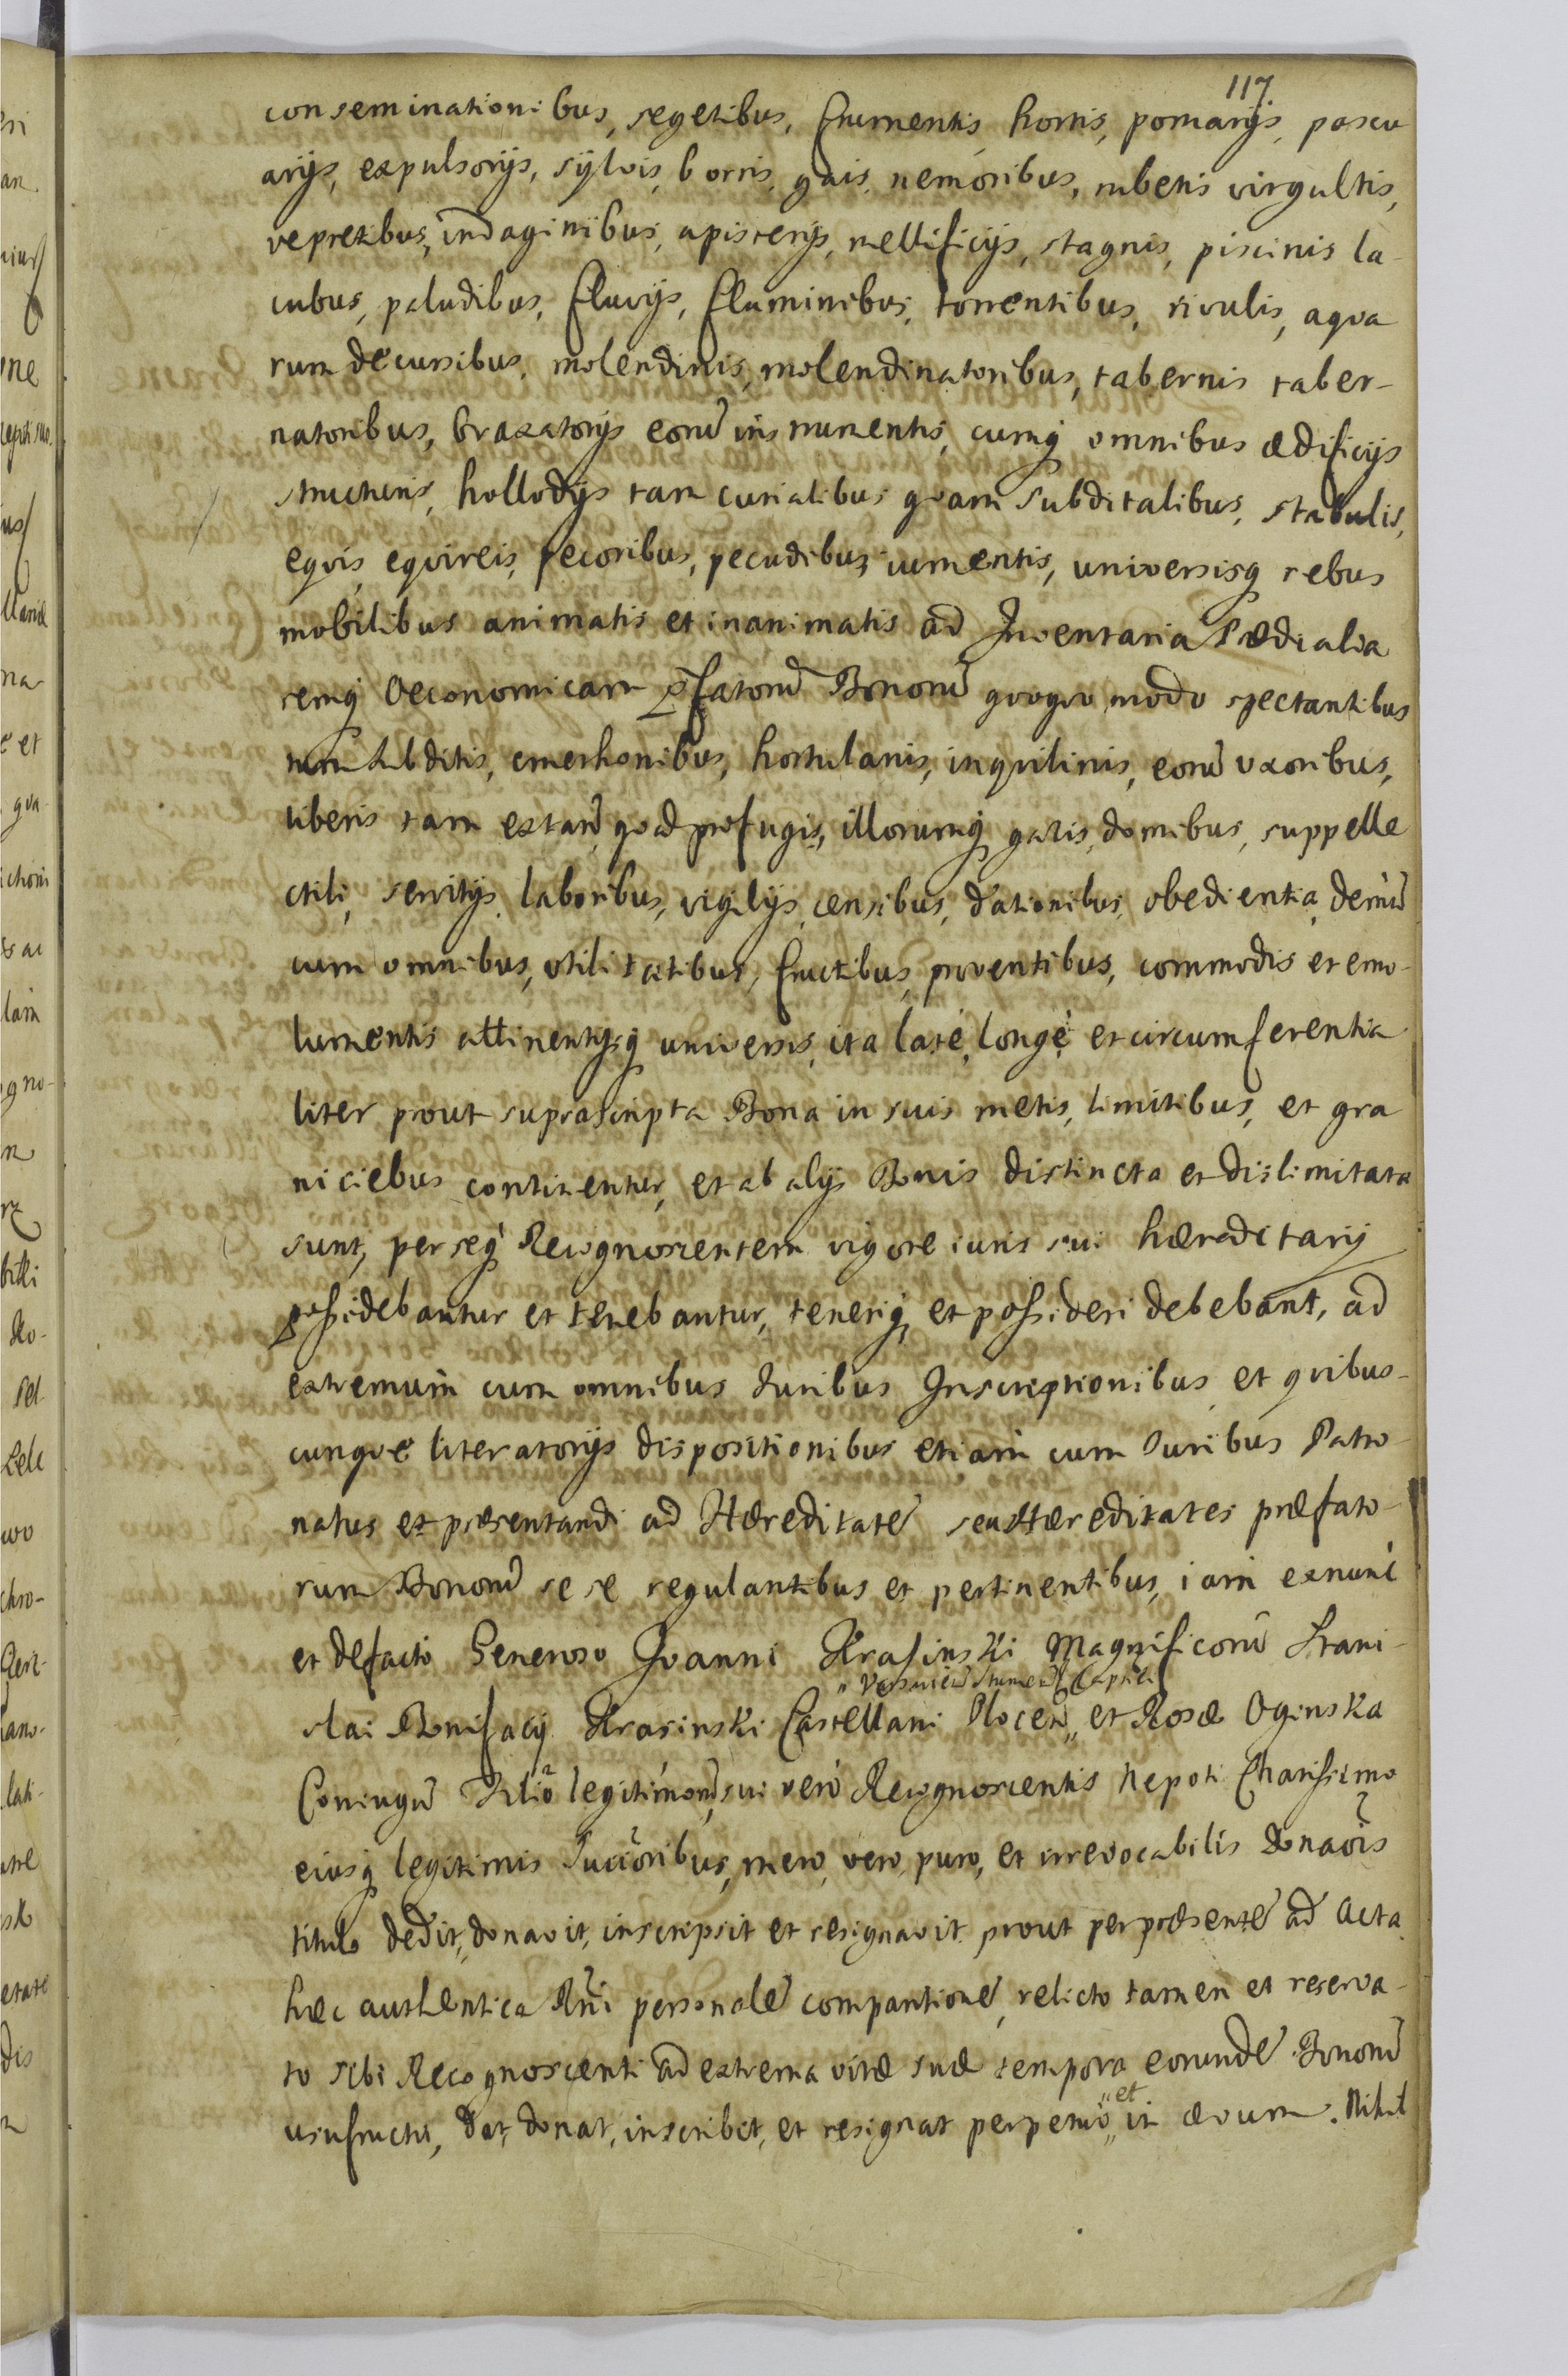 117
conseminationibus, segetibus, frumentis, hortis, pomarijs, pascu
arijs, expulsorijs, sylvis, borris, gais, nemoribus, rubetis virgultis,
vepretibus, indaginibus, apisterijs, mellificijs, stagnis, piscinis la-
cubus, paludibus, fluvijs, fluminibus, torrentibus, rivulis, aqva
rum decursibus, molendinis, molendinatoribus, tabernis taber-
natoribus, braxatorijs eorũ instrumentis, cumq̨ omnibus ædificijs
structuris, hollodijs tam curialibus qvam subditalibus, stabulis,
eqvis, eqvireis, pecoribus, pecudibus, iumentis, universisq̨ rebus
mobilibus animatis et inanimatis ad Inventaria Prædialia
remq̨ Oeconomicam p̄fatorũ Bonorũ qvoqvo modo spectantibus
tum subditis, cmethonibus, hortulanis, inqvilinis, eorũ uxoribus,
liberis tam extañ, qvad profugis, illorumq̨ gazis, domibus, suppelle
ctili, servitijs, laboribus, vigilijs, censibus, dationibus, obedientia, demũ
cum omnibus, utilitatibus, fructibus, proventibus, commodis et emo-
lumentis attinentijsq̨ universis, ita latè, longè et circumferentia
liter prout suprascripta Bona in suis metis, limitibus, et gra
niciebus continentur, et ab alijs Bonis distincta et dislimitata
sunt, per seq̨ Recognoscentem vigore iuris sui hæreditarij
possidebantur et tenebantur, teneriq̨ et possideri debebant, ad
extremum cum omnibus Juribus Inscriptionibus et qvibus-
cunqve literatorijs dispositionibus etiam cum Juribus Patro-
natus et præsentandi ad Hæreditatẽ seu Hæreditates præfato-
rum Bonorũ se se regulantibus et pertinentibus, iam exnunc
et defacto Generoso Joanni Krasinski Magnificorũ Stani-
slai Bonifacij Krasinski Castellani Plocen̄ „ et Rosæ Oginska
Coniugũ Filio legitimorũ, sui verò Recognoscentis Nepoti Charissimo
eiusq̨ legitimis Succōribus, mero, vero, puro, et irrevocabilis donaōis
titulo dedit, donavit, inscripsit et resignavit prout per præsentẽ ad Acta
hæc authentica Rñi personalẽ comparitionẽ, relicto tamen et reserva-
to sibi Recognoscenti ad extrema vitæ suæ tempora eorundẽ Bonorũ
usufructu, dat, donat, inscribit, et resignat perpetuò „et„ in ævum. Nihil